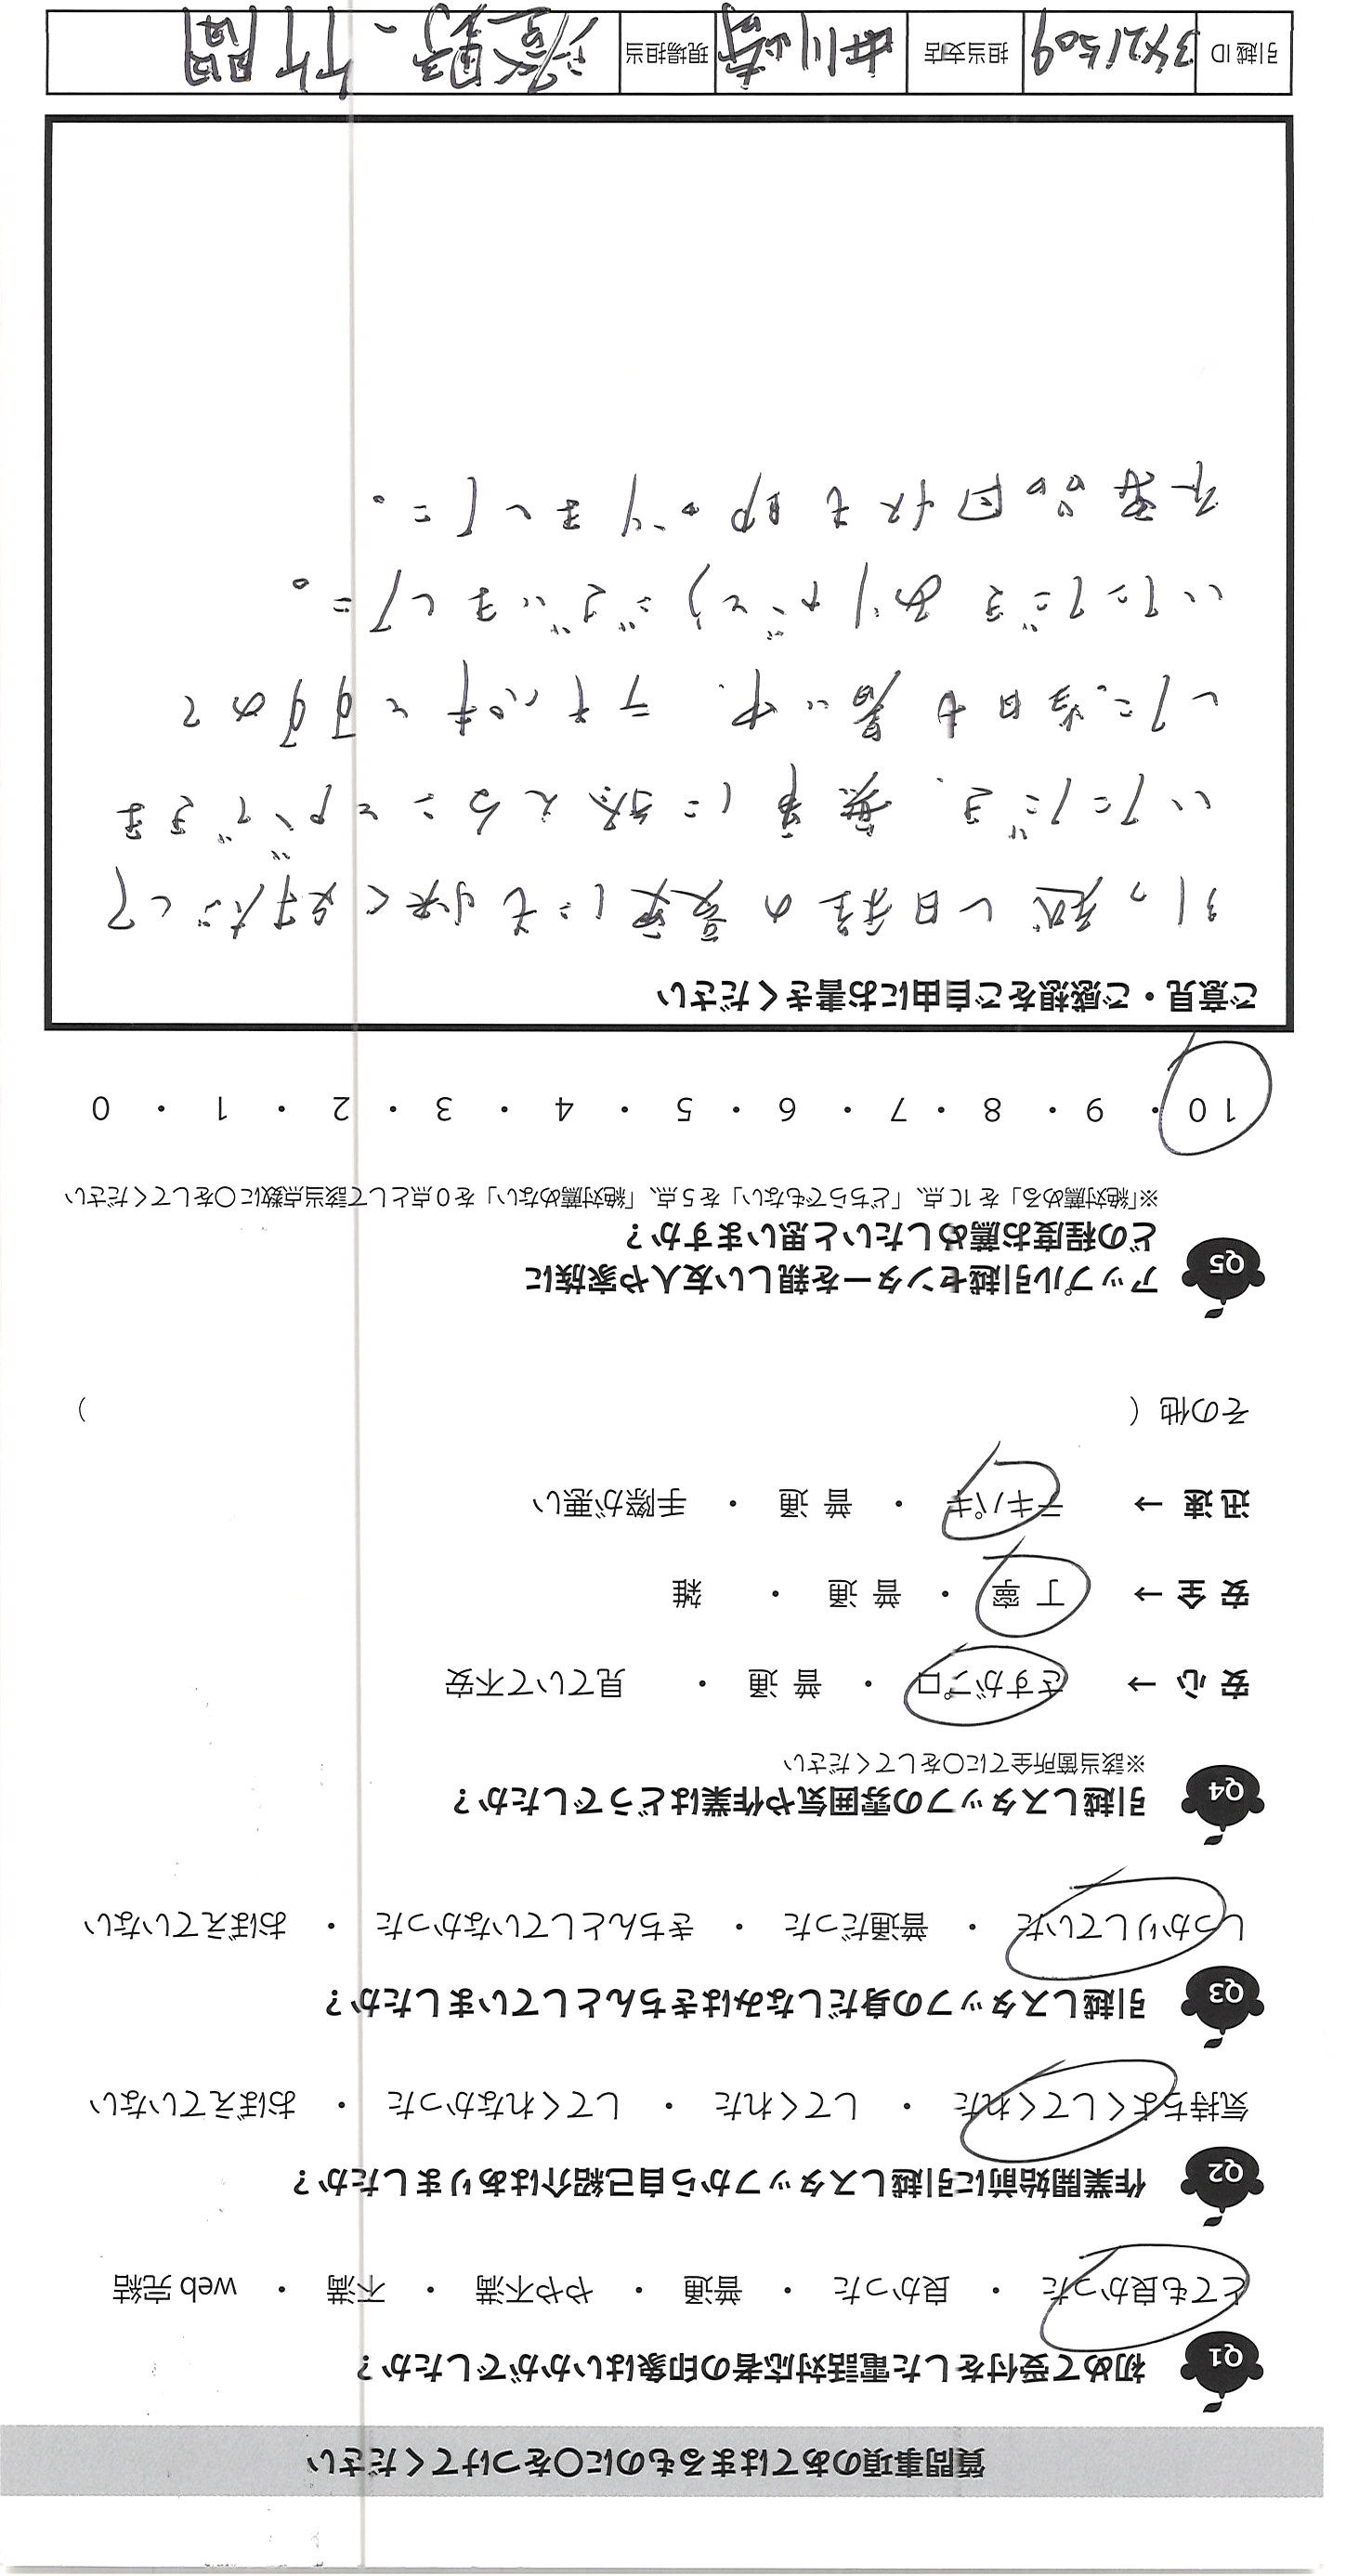 質問事項のあてはまるものに〇をつけてください
Q1 初めて受付をした電話対応者の印象はいかがでしたか？
とても良かった ・ 良かった ・ 普通 ・ やや不満 ・ 不満 ・ web 完結
Q2 作業開始前に引越しスタッフから自己紹介はありましたか？
気持ちよくしてくれた ・ してくれた ・ してくれなかった ・ おぼえていない
Q3 引越しスタッフの身だしなみはきちんとしていましたか？
しっかりしていた ・ 普通だった ・ きちんとしていなかった ・ おぼえていない
Q4 引越しスタッフの雰囲気や作業はどうでしたか？
※該当箇所全てに〇をしてください
安 心 → さすがプロ ・ 普 通 ・ 見ていて不安
安 全 → 丁 寧 ・ 普 通 ・ 雑
迅 速 → テキパキ ・ 普 通 ・ 手際が悪い
その他（ ）
Q5 アップル引越センターを親しい友人や家族に
どの程度お薦めしたいと思いますか？
※「絶対薦める」を 10 点、「どちらでもない」を 5 点、「絶対薦めない」を 0 点として該当点数に〇をしてください
10 ・ 9 ・ 8 ・ 7 ・ 6 ・ 5 ・ 4 ・ 3 ・ 2 ・ 1 ・ 0
ご意見・ご感想をご自由にお書きください
引っ越し日程の変更にも快く対応して
いただき、無事に終えることができま
した。当日も暑い中、テキパキとすすめて
いただきありがとうございました。
不要品回収も助かりました。
引越 ID 担当支店 川崎 現場担当